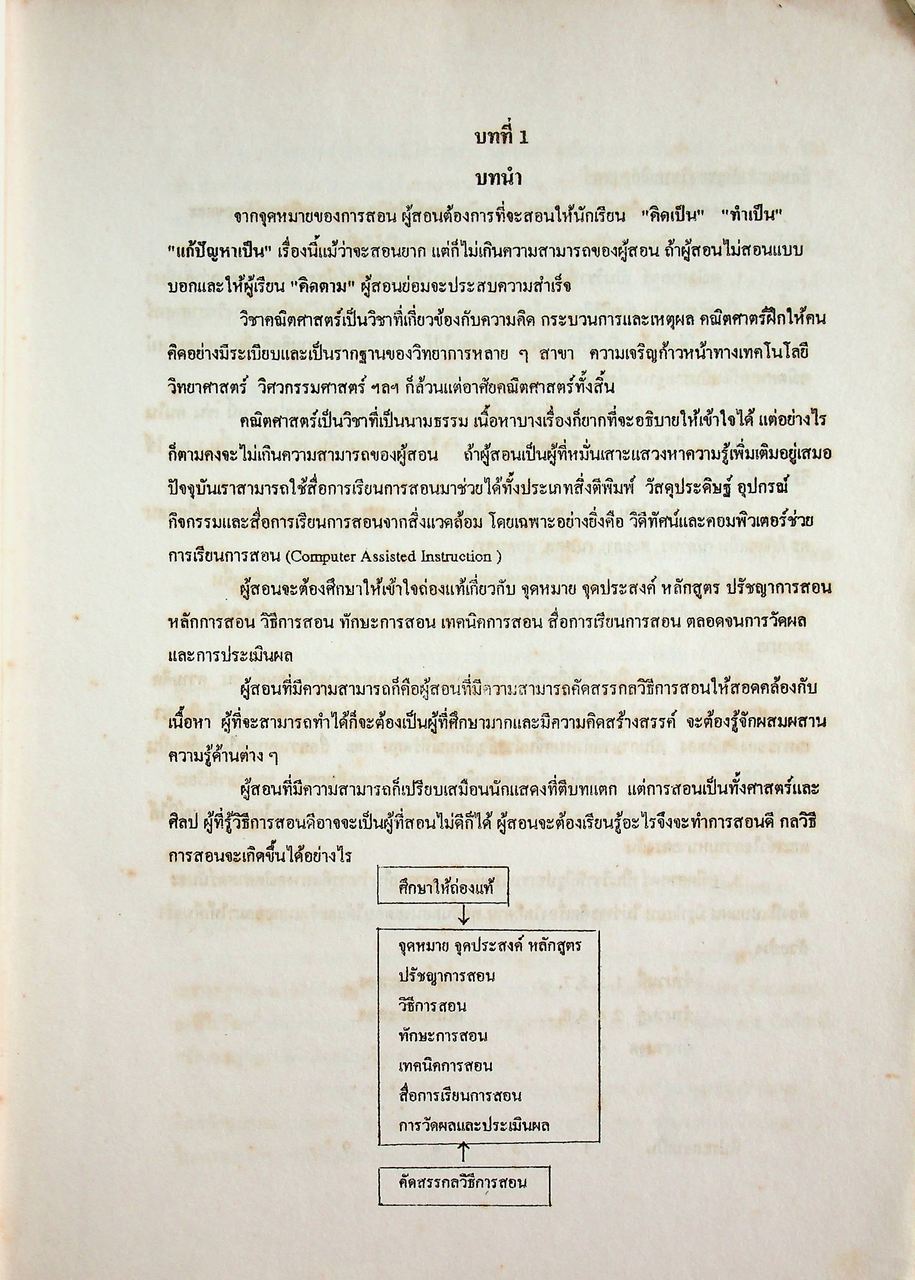 บทที่ 1
บทนำ
จากจุดหมายของการสอน ผู้สอนต้องการที่จะสอนให้นักเรียน "คิดเป็น" "ทำเป็น"
"แก้ปัญหาเป็น" เรื่องนี้แม้ว่าจะสอนยาก แต่ก็ไม่เกินความสามารถของผู้สอน ถ้าผู้สอนไม่สอนแบบ
บอกและให้ผู้เรียน "คิดตาม" ผู้สอนย่อมจะประสบความสำเร็จ
วิชาคณิตศาสตร์เป็นวิชาที่เกี่ยวข้องกับความคิด กระบวนการและเหตุผล คณิตศาตร์ฝึกให้คน
คิดอย่างมีระเบียบและเป็นรากฐานของวิทยาการหลาย ๆ สาขา ความเจริญก้าวหน้าทางเทคโนโลยี
วิทยาศาสตร์ วิศวกรรมศาสตร์ ฯลฯ ก็ล้วนแต่อาศัยคณิตศาสตร์ทั้งสิ้น
คณิตศาสตร์เป็นวิชาที่เป็นนามธรรม เนื้อหาบางเรื่องก็ยากที่จะอธิบายให้เข้าใจได้ แต่อย่างไร
ก็ตามคงจะไม่เกินความสามารถของผู้สอน ถ้าผู้สอนเป็นผู้ที่หมั่นเสาะแสวงหาความรู้เพิ่มเติมอยู่เสมอ
ปัจจุบันเราสามารถใช้สื่อการเรียนการสอนมาช่วยได้ทั้งประเภทสิ่งตีพิมพ์ วัสดุประดิษฐ์ อุปกรณ์
กิจกรรมและสื่อการเรียนการสอนจากสิ่งแวดล้อม โดยเฉพาะอย่างยิ่งคือ วิดีทัศน์และคอมพิวเตอร์ช่วย
การเรียนการสอน (Computer Assisted Instruction )
ผู้สอนจะต้องศึกษาให้เข้าใจถ่องแท้เกี่ยวกับ จุดหมาย จุดประสงค์ หลักสูตร ปรัชญาการสอน
หลักการสอน วิธีการสอน ทักษะการสอน เทคนิคการสอน สื่อการเรียนการสอน ตลอดจนการวัดผล
และการประเมินผล
ผู้สอนที่มีความสามารถก็คือผู้สอนที่มีความสามารถคัดสรรกลวิธีการสอนให้สอดคล้องกับ
เนื้อหา ผู้ที่จะสามารถทำได้ก็จะต้องเป็นผู้ที่ศึกษามากและมีความคิดสร้างสรรค์ จะต้องรู้จักผสมผสาน
ความรู้ด้านต่าง ๆ
ผู้สอนที่มีความสามารถก็เปรียบเสมือนนักแสดงที่ตีบทแตก แต่การสอนเป็นทั้งศาสตร์และ
ศิลป ผู้ที่รู้วิธีการสอนดีอาจจะเป็นผู้ที่สอนไม่ดีก็ได้ ผู้สอนจะต้องเรียนรู้อะไรจึงจะทำการสอนดี กลวิธี
การสอนจะเกิดขึ้นได้อย่างไร
ศึกษาให้ถ่องแท้
จุดหมาย จุดประสงค์ หลักสูตร
ปรัชญาการสอน
วิธีการสอน
ทักษะการสอน
เทคนิคการสอน
สื่อการเรียนการสอน
การวัดผลและประเมินผล
คัดสรรกลวิธีการสอน